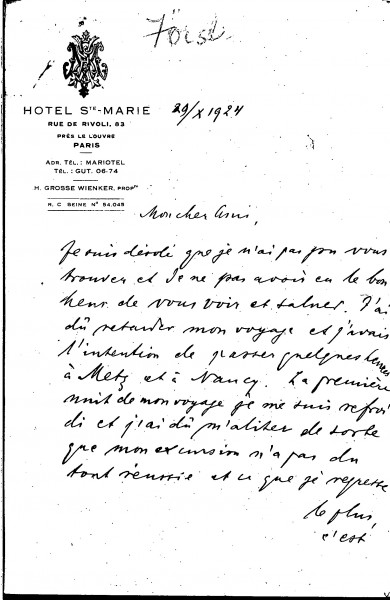 Först
HOTEL STE-MARIE
29/X 1924
RUE DE RIVOLI, 83
PRÈS LE LOUVRE
PARIS
ADR. TÉL.: MARIOTEL
TÉL.: GUT. 06-74
H. GROSSE WIENKER, PROPRE
R. C SEINE N° 54.045
Mon cher Ami,
Je suis désolé que je n'ai pas pu vous
trouver et de ne pas avoir eu le bon
heur de vous voir et saluer. J'ai
dû retarder mon voyage et j'avais
l'intention de passer quelques heures
à Metz et à Nancy. La première
nuit de mon voyage je me suis refroi
di et j'ai dû m'aliter de sorte
que mon excursion n'a pas du
tout réussie et ce que je regrette
le plus,
c'est